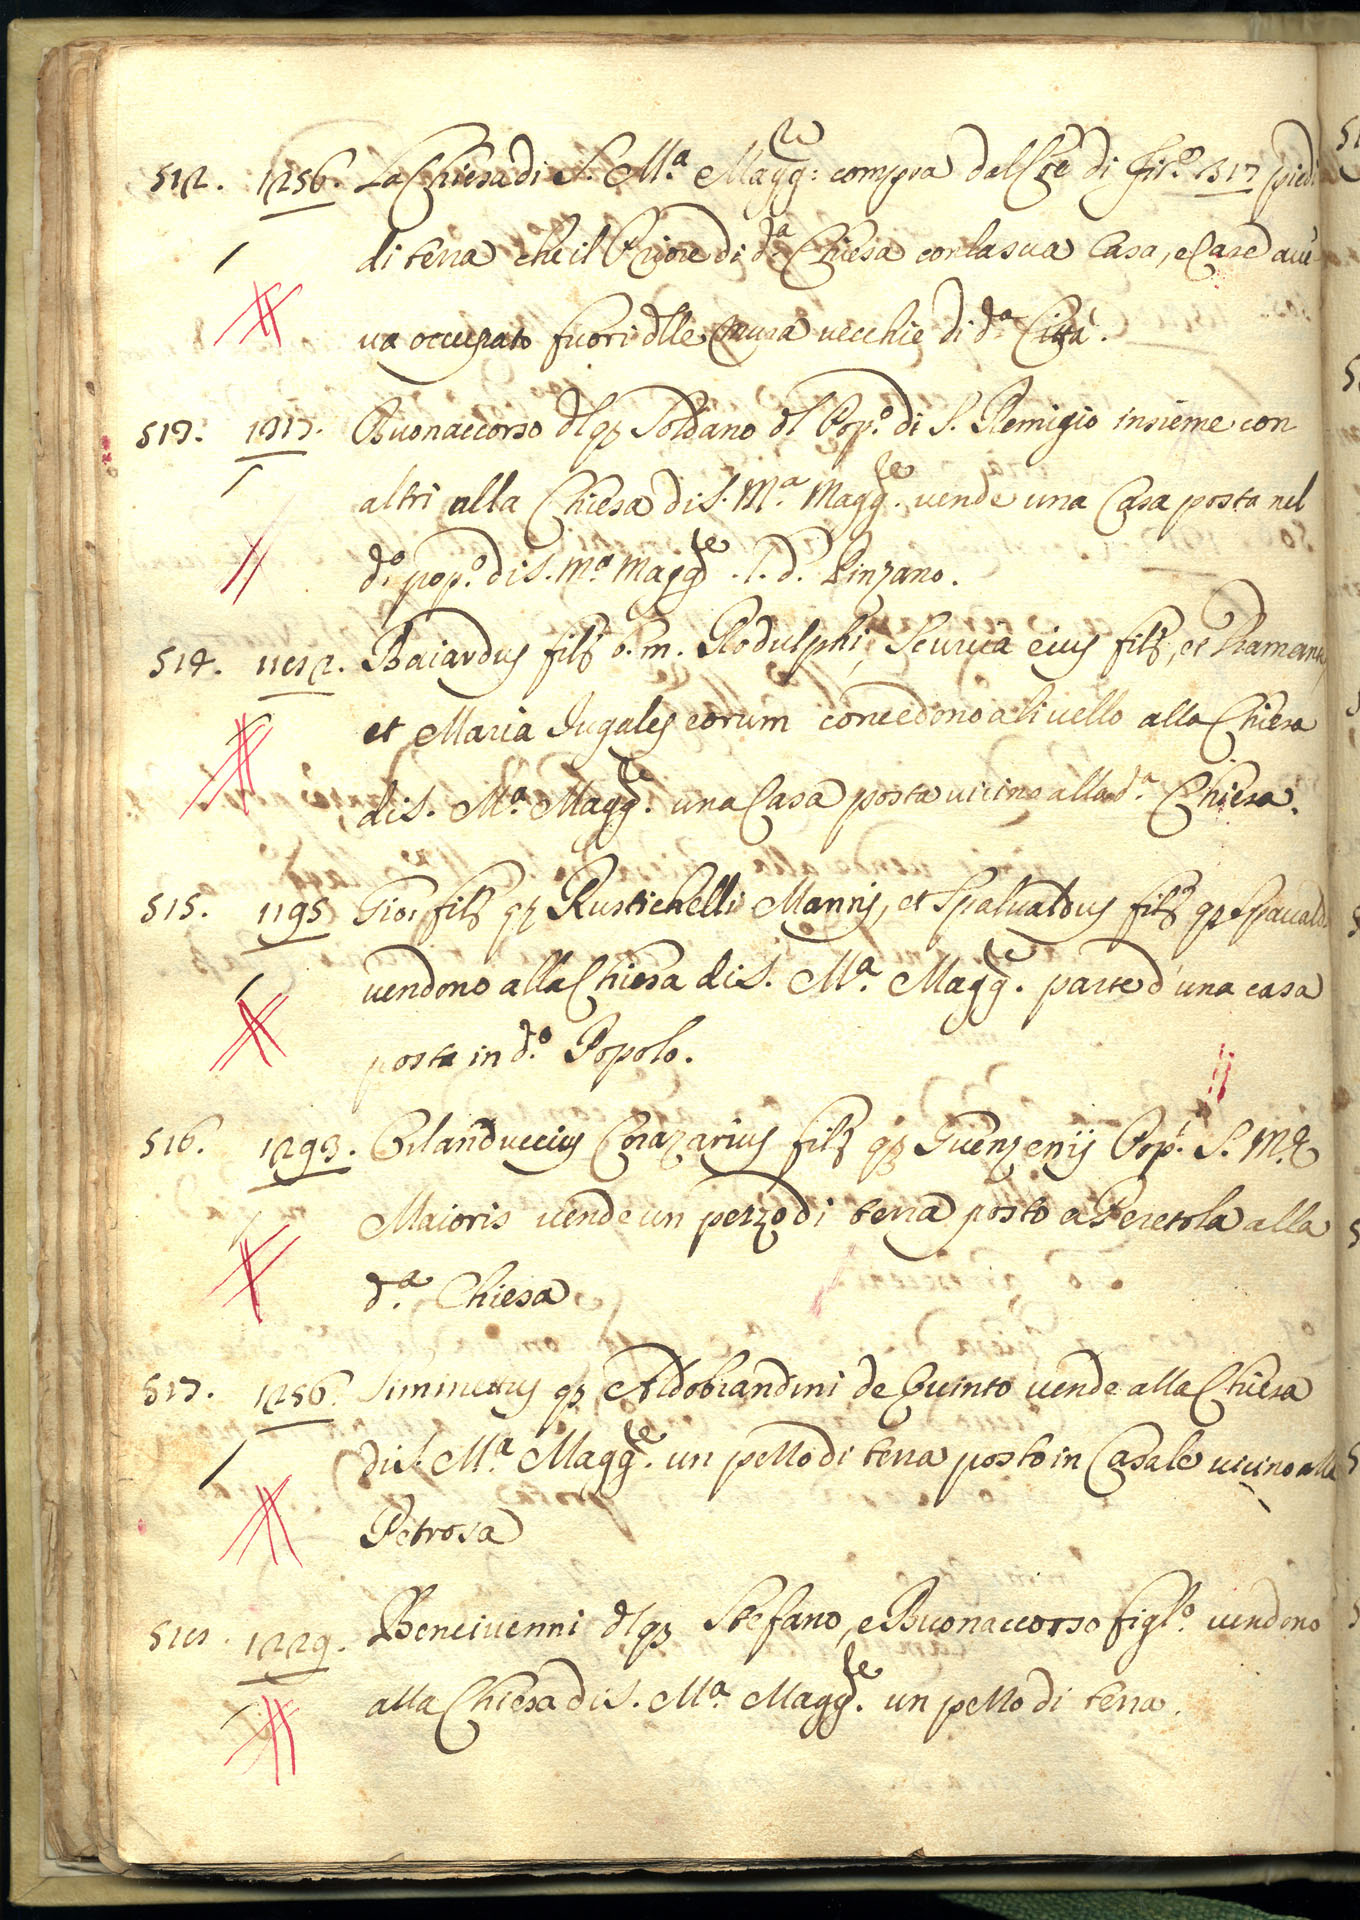 512. 1256. La Chiesa di S. M.ª Magg:re compra dal Cõe di Fir.e 1317 piedi
di terra che il Priore di d.ª Chiesa con la sua Casa, e Case ave
va occupato fuori dlle mura vecchie di d.ª Città.
513. 1313. Buonaccorso dl qz Soldano dl Pop.º di S. Remigio insieme con
altri alla Chiesa di S. M.ª Magg.re vende una Casa posta nel
d.º pop.º di S. M.ª Magg.re l. d. Pinzano.
514. Baiardus filz b. m. Rodulphi, Scuria eius filz, et
et Maria Jugales eorum concedono a livello alla Chiesa
di S. M.ª Magg.re una Casa posta vicino alla d.ª Chiesa.
515. 1195 Gio: filz qz Rustichelli Mannis, et Spaluatdus filz qz
vendono alla Chiesa di S. M.ª Magg.re parte d'una casa
posta in d.º Popolo.
516. 1293. Orlanduccius Corazarius filz qz Guenzenij Pop.i S. M.æ
Maioris vende un pezzo di terra posto a Peretola alla
d.ª Chiesa
517. 1256. Siminettus qz Aldobrandini de Quinto vende alla Chiesa
di S. M.ª Magg.re un pezzo di terra posto in Casale vicino alla
Petrosa
518. 1229. Bencivenni dl qz Stefano, e Buonaccorso figl.º vendono
alla Chiesa di S. M.ª Magg.re un pezzo di terra.